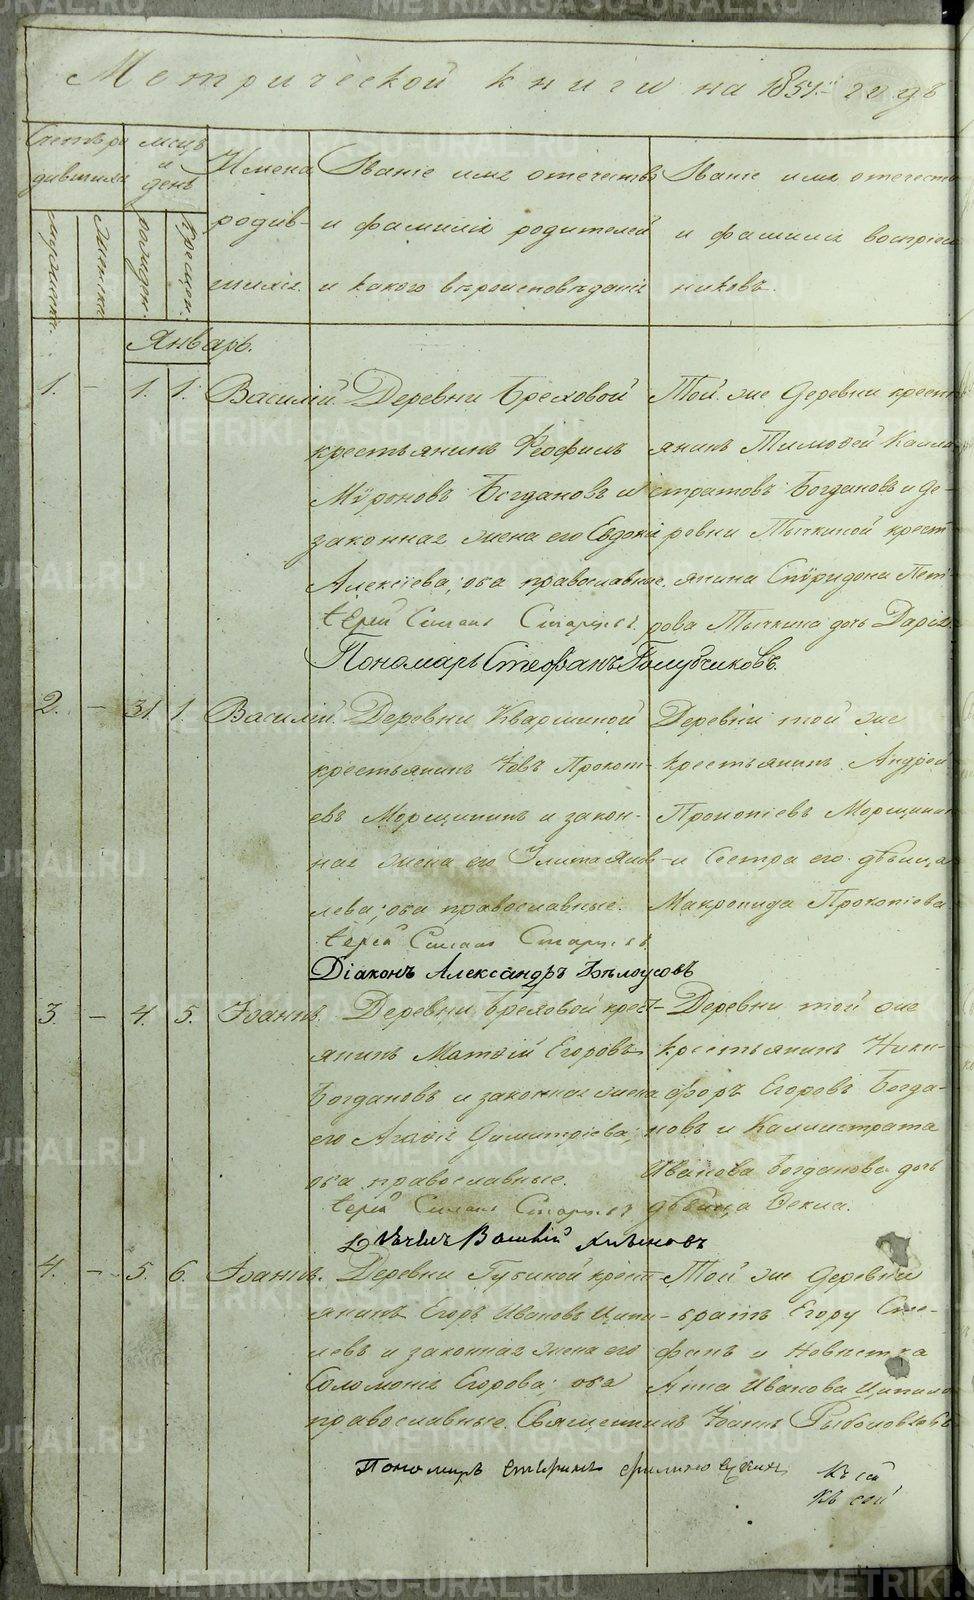 Метрической книги на 1851 годъ
Счетъ родившихся
мѣсцъ и день
Имена родившихся.
Званіе имя отечество и фамилія родителей и какого вѣроисповѣданія
Званіе имя отечество и фамилія воспріемниковъ.
рожден.
крещен.
Январь.
1. – 1. 1. Василій.
Деревни Бреховой
крестьянинъ Ѳеофилъ
Мѵроновъ Богдановъ и
законная жена его Евдокія
Алексіева; оба православные.
Іерей
Пономарь Стефанъ Голубчиковъ.
Той же деревни крест
янинъ Тимофей Калли
стратовъ Богдановъ и де-
ревни Тычкиной крест
янина Спѵридона Пет-
рова Тычкина дочь Дарія.
2. – 31. 1. Василій.
Деревни
крестьянинъ Іовъ Прокоп-
евъ Морщининъ и закон-
ная жена его Улита Яков-
лева; оба православные.
Іерей
Діаконъ Александръ Бѣлоусовъ
Деревни той же
крестьянинъ Андрей
Прокопіевъ Морщинин
и Сестра его дѣвица
Макрида Прокопіева
3. – 4. 5. Іоаннъ.
Деревни Бреховой крест-
янинъ Матѳій Егоровъ
Богдановъ и законная жена
его Агаѳія Димитріева;
оба православные.
Іерей
Деревни той же
крестьянинъ Ники-
форъ Егоровъ Богда-
новъ и Каллистрата
Иванова Богданова дочь
дѣвица Ѳекла.
4. – 5. 6. Іоаннъ.
Деревни крест-
янинъ Егоръ Ивановъ Ципи-
левъ и законная жена его
Соломонія Егорова; оба
православные. Священникъ Іоаннъ Рыболовлевъ
Пономарь
Той же деревни
братъ Егору Сте-
фанъ и
Анна Иванова
Къ сей
Къ сей
METRIKI.GASO-URAL.RU